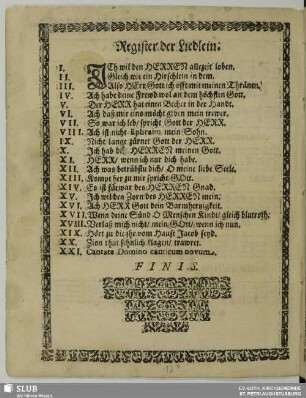 Register der Liedlein.
I. JCh wil den HERREN allezeit loben.
II. Gleich wie ein Hirschlein in dem.
III. Also HErr Gott/ ich offt mit meinen Thränen.
IV. Ach habe deine Frewd wol an dem höchsten Gott.
V. Der HERR hat einen Becher in der Handt.
VI. Ach daß mir eins möcht geben mein trewer.
VII. So war ich leb/ spricht Gott der HERR.
VIII. Ach ist nicht Ephraim mein Sohn.
IX. Nicht lange zürnet Gott der HERR.
X. Ich hab dich HERREN meinen Gott.
XI. HERR/ wenn ich nur dich habe.
XII. Ach was betrübstu dich/ O meine liebe Seele.
XIII. Kompt her zu mir spricht GOtt.
XIV. Es ist fürwar des HERREN Gnad.
XV. Ich wil den Zorn des HERREN mein.
XVI. Ach HERR Gott dein Barmhertzigkeit.
XVII. Wenn deine Sünd O Menschen Kindt/ gleich blutroth.
XVIII. Verlaß mich nicht/ mein GOtt/ wenn ich nun.
XIX. Hört zu die ihr vom Hauß Jacob seyd.
XX. Sion that sehnlich klagen/ trawret.
XXI. Cantate Domino canticum novum.
FINIS.
SLUB
Wir führen Wissen.
EV.-LUTH. KIRCHGEMEINDE
ST. PETRI AUGUSTUSBURG